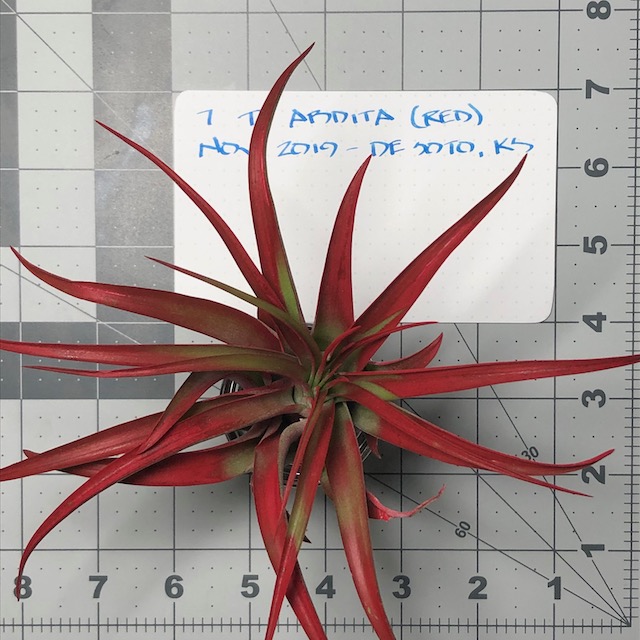 7 T. ABDITA (RED)
NOV 2019 - DE SOTO, KS
8
7
6
5
4
3
2
1
30
60
8 7 6 5 4 3 2 1